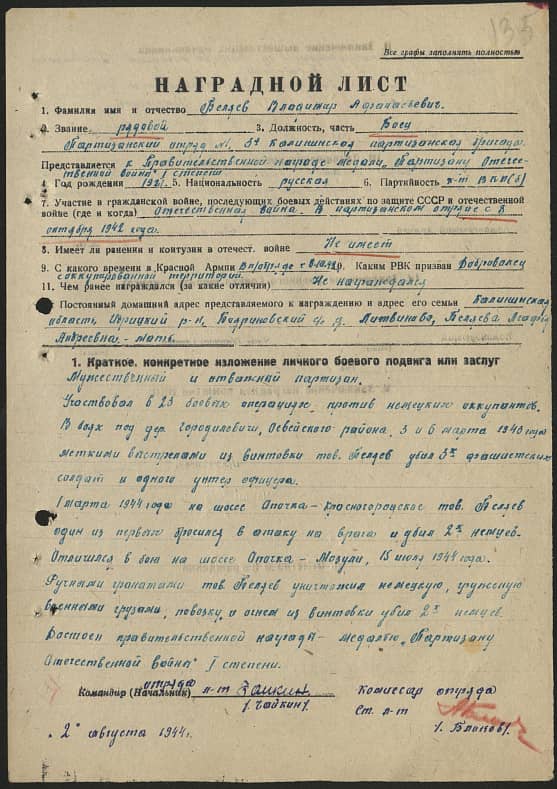 135
Все графы заполнять полностью
НАГРАДНОЙ ЛИСТ
1. Фамилия имя и отчество Беляев Владимир Афанасьевич.
2. Звание рядовой 3. Должность, часть Боец
Партизанский отряд №1, 5й Калининская партизанская бригада
Представляется к Правительственной награде медали „Партизану Отече-
ственной войны" I степени
4. Год рождения 5. Национальность русская 6. Партийность к-т ВКП(б)
7. Участие в гражданской войне, последующих боевых действиях по защите СССР и отечественной
войне (где и когда) Отечественная война. В партизанском отряде с 8
октября 1942 года.
8. Имеет ли ранения и контузии в отечест. войне Не имеет
9. С какого времени в Красной Армии 10. Каким РВК призван Доброволец
с оккупированной территории.
11. Чем ранее награждался (за какие отличия) Не награждался
Постоянный домашний адрес представляемого к награждению и адрес его семьи Калининская
область, Идрицкий р-н, Бояриновский с/с д. Литвиново, Беляева Агафья
Андреевна - мать.
1. Краткое, конкретное изложение личного боевого подвига или заслуг
Мужественный и отважный партизан.
Участвовал в 23 боевых операциях против немецких оккупантов.
В боях под дер. Городилевичи, Освейского района, 5 и 6 марта 1943 года
меткими выстрелами из винтовки тов. Беляев убил 5х фашистских
солдат и одного унтер офицера.
1 марта 1944 года на шоссе Опочка-Красногородское тов. Беляев
один из первых бросился в атаку на врага и убил 2х немцев.
Отличился в бою на шоссе Опочка-Мозули, 15 июля 1944 года.
Ручными гранатами тов. Беляев уничтожил немецкую, груженную
военными грузами, повозку и огнем из винтовки убил 2х немцев.
Достоен правительственной награды - медалью „Партизану
Отечественной войны" I степени.
отряда
Командир (Начальник) л-т Чайкин Комиссар отряда
/Чайкин/. Ст. л-т
/Блинов/.
„2" августа 1944 г.